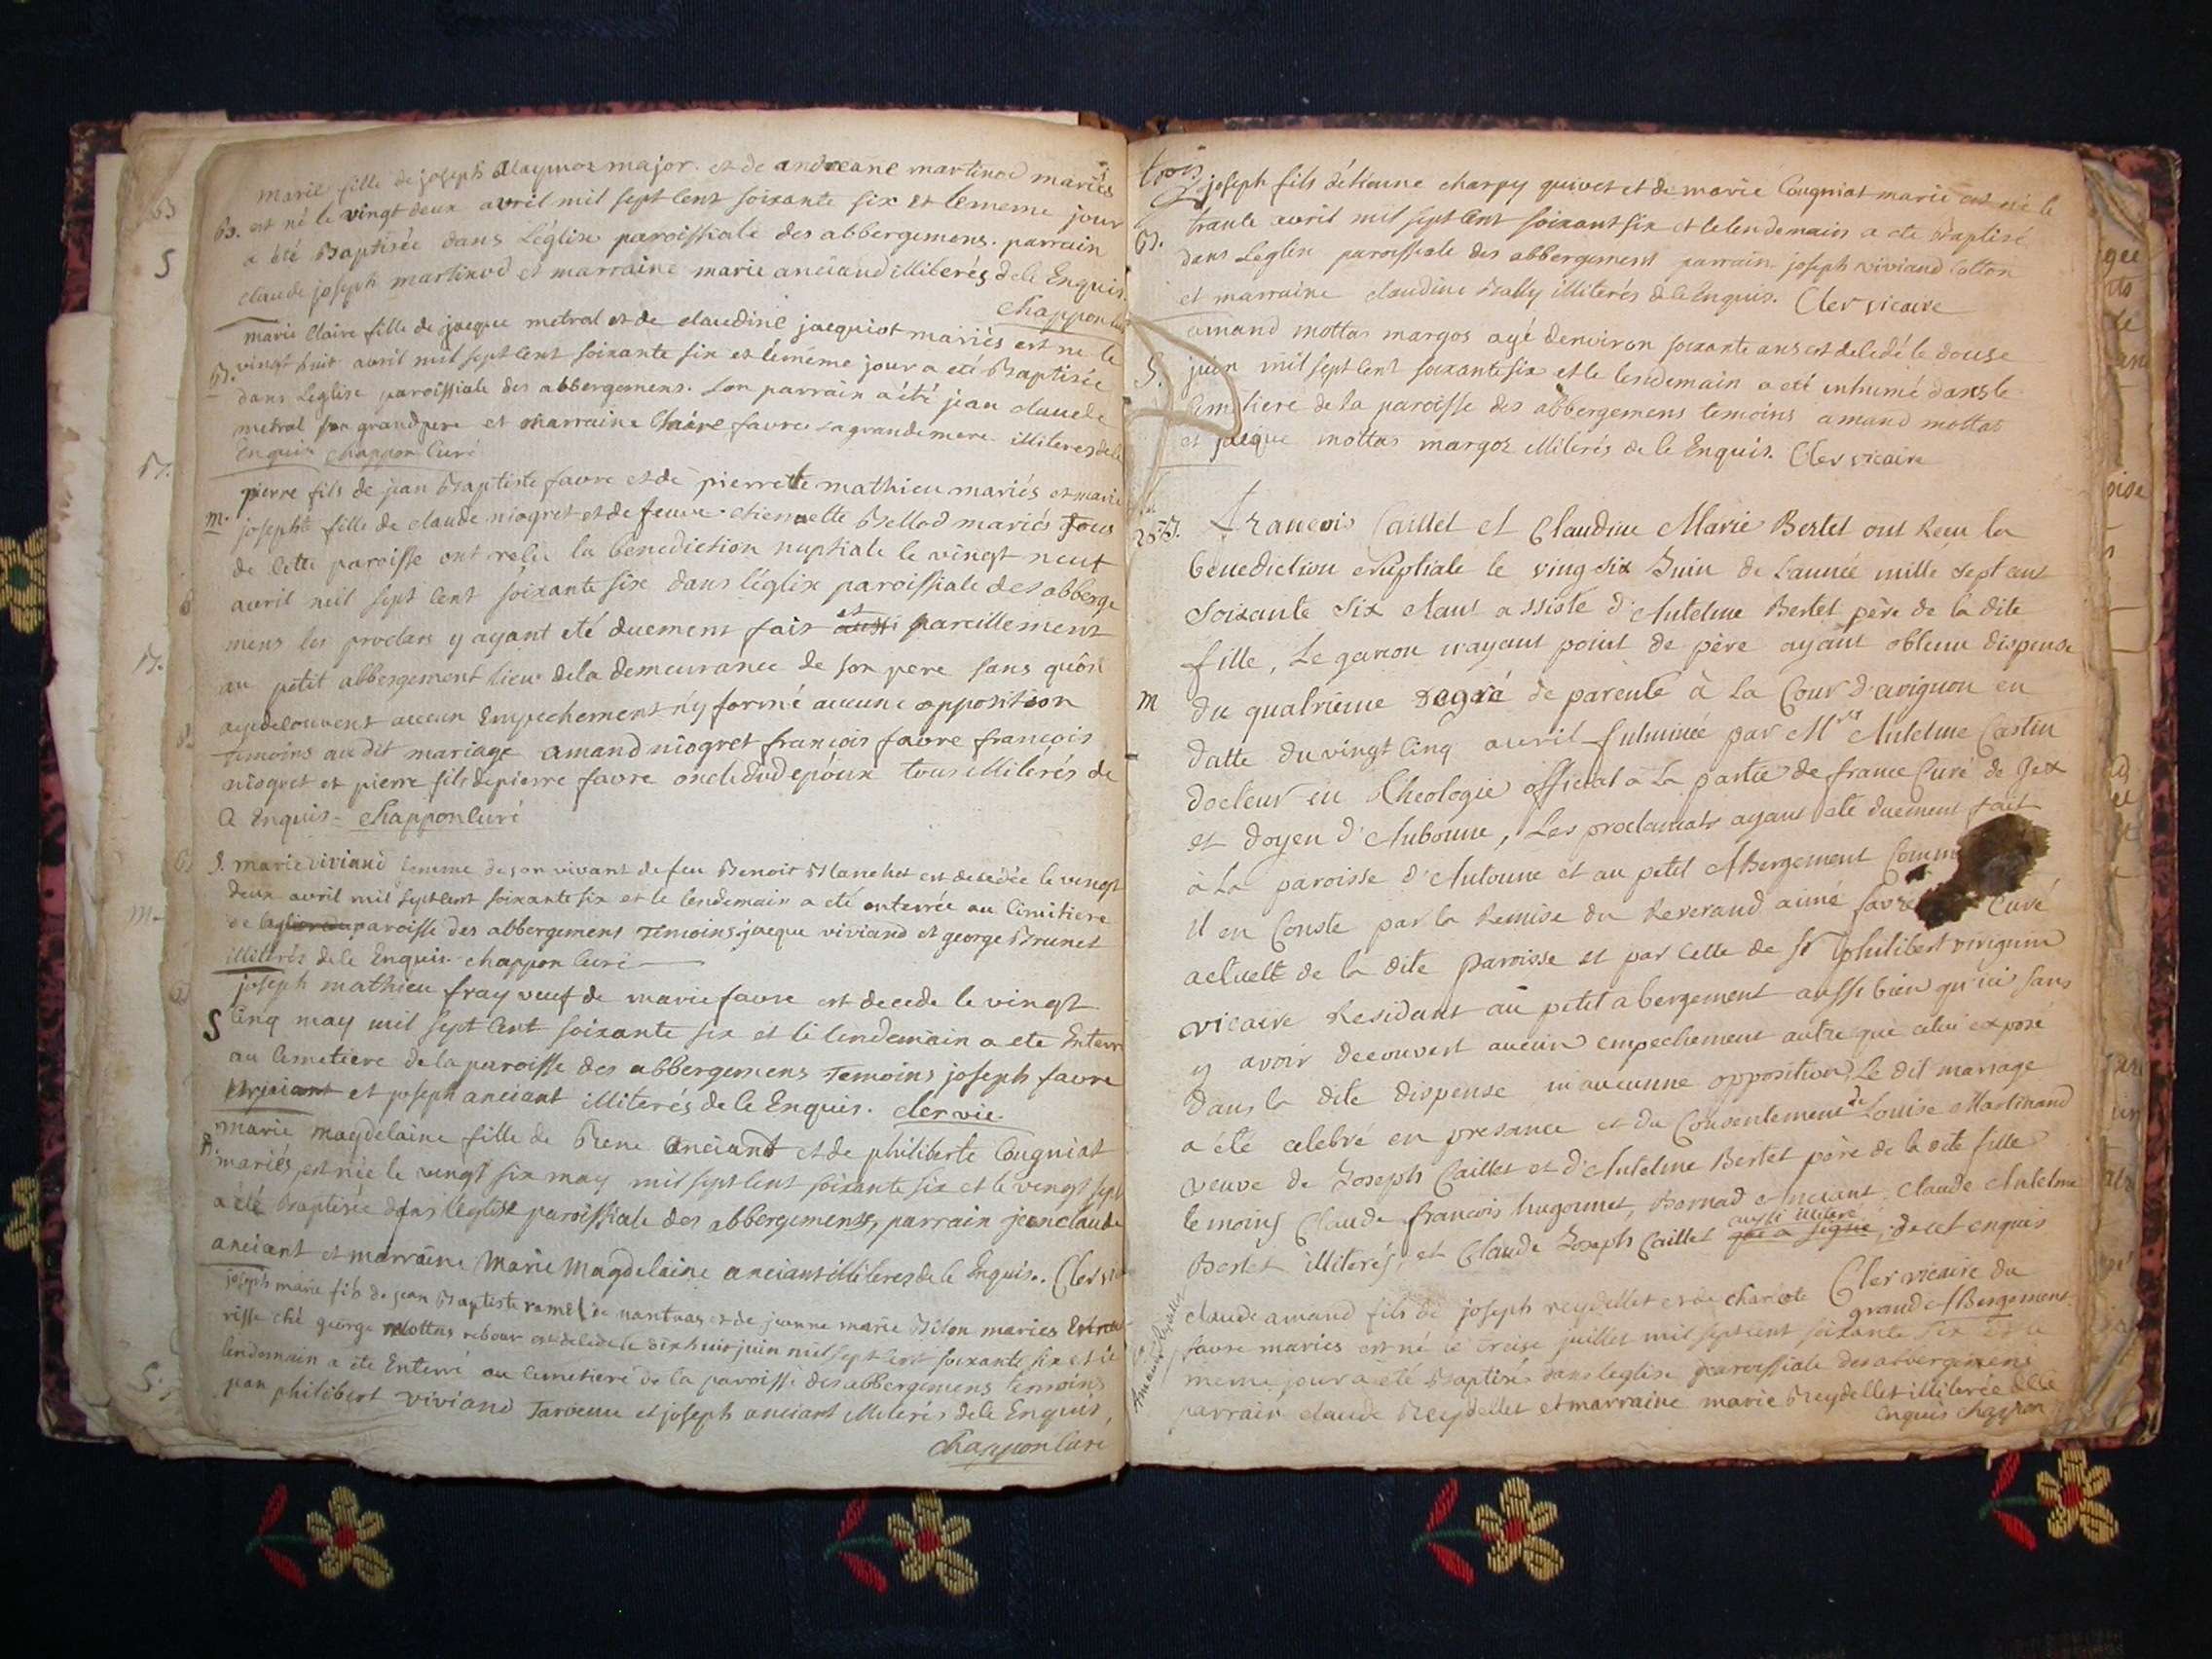 marie fille de joseph alaymoz major. et de andreane martinod mariés
B. est né le vingt deux avril mil sept cent soixante six et le meme jour
a été Baptisée dans L'église paroissiale des abbergemens. parrain
claude joseph martinod et marraine marie anciand illiterés de le Enquis.
Chappon Curé
marie claire fille de jacque metral et de claudine jacquiot mariés est ne le
B. vingt huit avril mil sept cent soixante six et le même jour a été Baptisée
dans L'eglise paroissiale des abbergemens. son parrain a été jean claude
metral son grand pere et marraine Claire favre sa grande mere illiteres de le
Enquis chappon Curé
pierre fils de jean Baptiste favre et de pierrette mathieu mariés et marie
m. josephte fille de claude niogret et de feuve etiennette Bellod mariés Tous
de cette paroisse ont recu la benediction nuptiale le vingt neuf
avril mil sept cent soixante six dans l'église paroissiale des abberge
mens les proclars y ayant eté duement fais et aussi pareillement
au petit abbergement lieu de la demeurance de son pere sans qu'on
aye decouvert aucun Empechement n'y formé aucune opposition
temoins au dit mariage amand niogret françois favre françois
niogret et pierre fils de pierre favre oncle dud epoux tous illiterés de
a Enquis - Chappon Curé
S. marie viviand femme de son vivant de feu Benoit Blanchet est decedée le vingt
deux avril mil sept cent soixante six et le lendemain a été enterrée au Cimitiere
de la paroisse des abbergemens Temoins jacque viviand et george Brunet
illiterés de le Enquis. chappon Curé
joseph mathieu fray veuf de marie favre est decede le vingt
S cinq may mil sept cent soixante six et le lendemain a ete Enterré
au Cemetiere de la paroisse des abbergemens Temoins joseph favre
et joseph anciant illiterés de le Enquis. Cler vic.
marie magdelaine fille de Rene anciant et de philiberte Cougniat
B. mariés est née le vingt six may mil sept cent soixante six et le vingt sept
a eté Baptisée dans l'église paroissiale des abbergements, parrain jean claude
anciant et marraine Marie Magdelaine anciant illiteres de le Enquis. Cler vic
joseph marie fils de jean Baptiste ramel de nantuas et de jeanne marie Bilon maries
risse ché george Mottas rebour est decede le dixhuit juin mil sept cent soixante six et le
lendemain a ete Enterré au Cemetiere de la paroisse des abbergemens temoins
jean philibert viviand Tarveau et joseph anciant illiterés de le Enquis,
Chappon Curé
trois
joseph fils d'étienne charpy quivet et de marie Cougniat marié est né le
B. trante avril mil sept cent soixant six et le lendemain a ete Baptisé
dans L'eglise paroissiale des abbergement parrain joseph viviand Colton
et marraine claudine Bally illiterés de le Enquis. Cler vicaire
amand mottas margos agé d'environ soixante ans est decedé le douse
S. juin mil sept cent soixante six et le lendemain a eté inhumé dans le
Cemetiere de la paroisse des abbergemens temoins amand mottas
et jacque mottas margoz illiterés de le Enquis. Cler vicaire
françois Caillet et Claudine Marie Bertet ont Recu la
benediction Nuptiale le vingt six Juin de L'année mille sept cent
soixante six etant assisté d'Antelme Bertet père de la dite
fille, Le garcon n'ayant point de père ayant obtenu dispense
m du quatrième degré de parenté à la Cour d'avignon en
datte du vingt cinq avril fulminée par Mre Antelme Castin
docteur en Theologie official à La partie de france Curé de Gex
et doyen d'Aubonne, Les proclamats ayant été duement fait
à La paroisse d'Autonne et au petit Abergement Comm
il en Conste par la Remise du Reverand aimé favre Curé
actuelt de la dite paroisse et par celle de sr philibert
vicaire Residant au petit abergement aussi bien qu'ici sans
y avoir decouvert aucun empechement autre que celui exposé
dans la dite dispense ni aucunne opposition, Le dit mariage
a été celebré en presance et du Consentement de Louise Martinand
veuve de Joseph Caillet et d'Antelme Bertet père de la dite fille
temoins Claude francois hugonnet, Bernad anciant, Claude Antelme
Bertet illiterés, et Claude Joseph Caillet aussi illiteré que a signé, de cet enquis
Cler vicaire du
grand Abergement
claude amand fils de joseph reydellet et de charlote
favre mariés est né le treise juillet mil sept cent soixante six et le
meme jour a été Baptisé dans l'eglise paroissiale des abbergemens
parrain claude Reydellet et marraine marie Reydellet illiterée de le
Enquis chappon